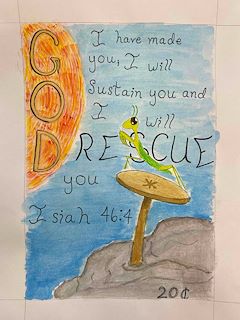 GOD
I have made
you, I will
Sustain you and
I will
RESCUE
you
Isiah 46:4
20¢